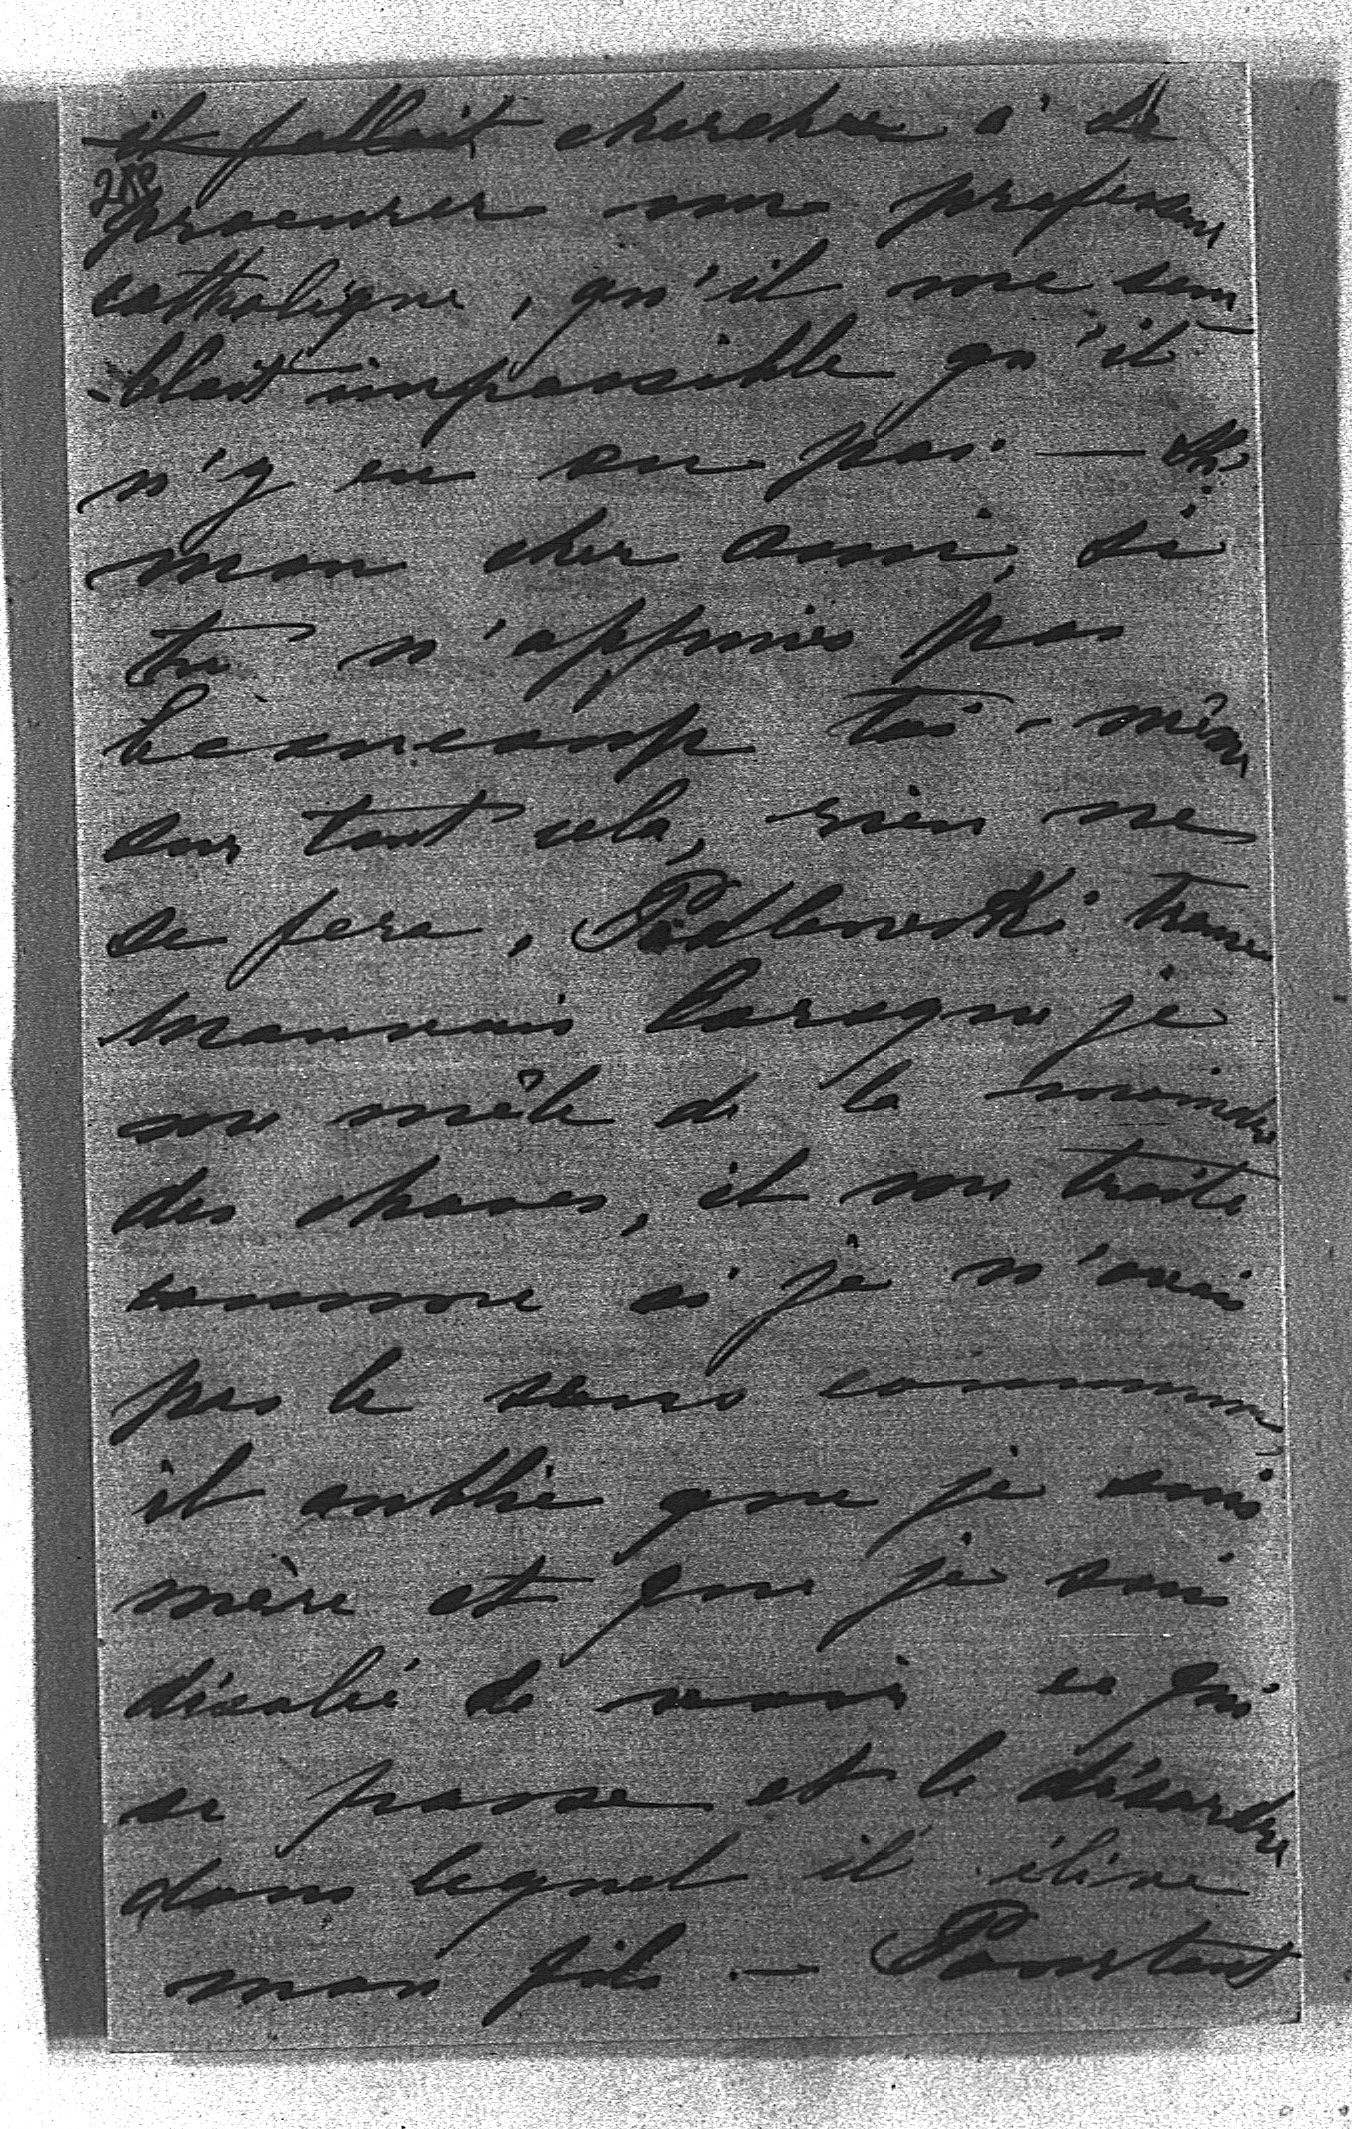 il fallait chercher à se
procurer un professeur
catholique, qu'il me sem
-blait impossible qu'il
n'y en eu pas. — Ah!
mon cher ami, si
tu n'appuies pas
beaucoup toi-même
sur tout cela, rien ne
se fera, Podlewski trouve
mauvais lorsque je
me mêle de la moindre
des choses, il me traite
comme si je n'avais
pas le sens commun,
il oublie que je suis
mère et que je suis
désolée de voir ce qui
se passe et le désordre
dans lequel il élève
mon fils. — Pourtant